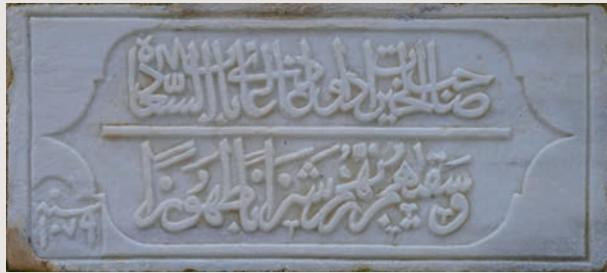 صاحب الخيرات داود اغا اغاى باب السعادة
وسقاهم ربهم شرابا طهورا
سنه ١٠٧٩